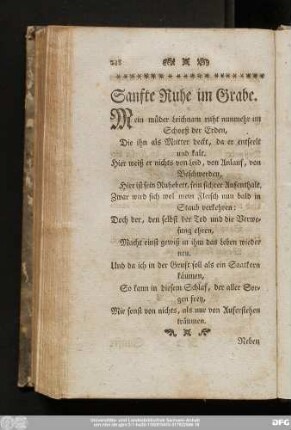 212
Sanfte Ruhe im Grabe.
Mein müder Leichnam ruht nunmehr im
Schooß der Erden,
Die ihn als Mutter deckt, da er entseelt
und kalt.
Hier weiß er nichts von Leid, von Anlauf, von
Beschwerden,
Hier ist sein Ruhebett, sein sichrer Aufenthalt,
Zwar wird sich wol mein Fleisch nun bald in
Staub verkehren:
Doch der, den selbst der Tod und die Verwe-
sung ehren,
Macht einst gewiß in ihm das Leben wieder
neu.
Und da ich in der Gruft soll als ein Saatkorn
käumen,
So kann in diesem Schlaf, der aller Sor-
gen frey,
Mir sonst von nichts, als nur von Auferstehen
träumen.
Neben
DFG